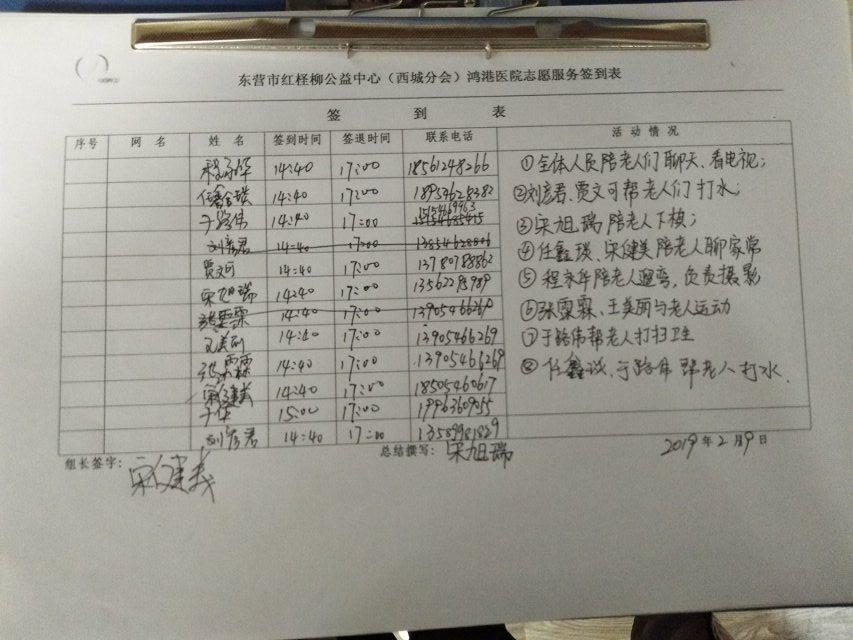 东营市红柽柳公益中心（西城分会）鸿港医院志愿服务签到表
签 到 表
序号 网 名 姓 名 签到时间 签退时间 联系电话 活 动 情 况
程永华 14:40 17:00 18561248266
任鑫瑛 14:40 17:00 18954628382
于路伟 14:40 17:00
刘彦君 14:40 17:00
贾文可 14:40 17:00 13780788862
宋旭瑞 14:40 17:00 13562295989
张霖霖 14:40 17:00 13905466269
王美丽 14:40 17:00 13905466269
张霖霖 14:40 17:00 13905466269
宋健美 14:40 17:00 18505460617
于华 15:00 17:00 19963609055
刘彦君 14:40 17:00 13589981829
①全体人员陪老人们聊天、看电视；
②刘彦君、贾文可帮老人们打水；
③宋旭瑞陪老人下棋；
④任鑫瑛、宋健美陪老人聊家常
⑤程永华陪老人遛弯，负责摄影
⑥张霖霖、王美丽与老人运动
⑦于路伟帮老人打扫卫生
⑧任鑫 、于路伟 帮老人打水.
组长签字：宋健美 总结撰写：宋旭瑞 2019年2月9日